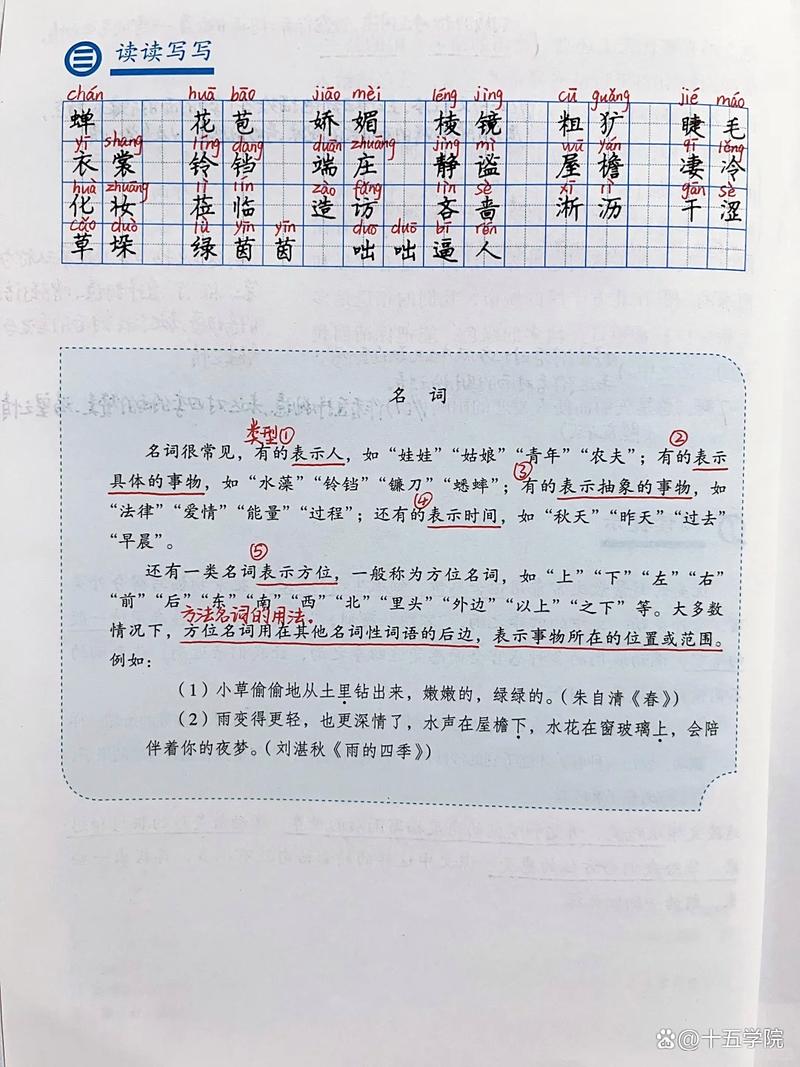 三 读读写写
chán huā bāo jiāo mèi léng jìng cū guǎng jié máo
蝉 花苞 娇媚 棱镜 粗犷 睫毛
yī shang líng dang duān zhuāng jìng mì wū yán qī lěng
衣裳 铃铛 端庄 静谧 屋檐 凄冷
huà zhuāng lì lín zào fǎng lìn sè xī lì gān sè
化妆 莅临 造访 吝啬 淅沥 干涩
cǎo duò lǜ yīn yīn duō duō bī rén
草垛 绿茵茵 咄咄逼人
名 词
类型① ②
名词很常见,有的表示人,如“娃娃”“姑娘”“青年”“农夫”;有的表示
③
具体的事物,如“水藻”“铃铛”“镰刀”“蟋蟀”;有的表示抽象的事物,如
④
“法律”“爱情”“能量”“过程”;还有的表示时间,如“秋天”“昨天”“过去”
“早晨”。
⑤
还有一类名词表示方位,一般称为方位名词,如“上”“下”“左”“右”
“前”“后”“东”“南”“西”“北”“里头”“外边”“以上”“之下”等。大多数
方法名词的用法.
情况下,方位名词用在其他名词性词语的后边,表示事物所在的位置或范围。
例如:
(1)小草偷偷地从土里钻出来,嫩嫩的,绿绿的。(朱自清《春》)
(2)雨变得更轻,也更深情了,水声在屋檐下,水花在窗玻璃上,会陪
伴着你的夜梦。(刘湛秋《雨的四季》)
@十五学院